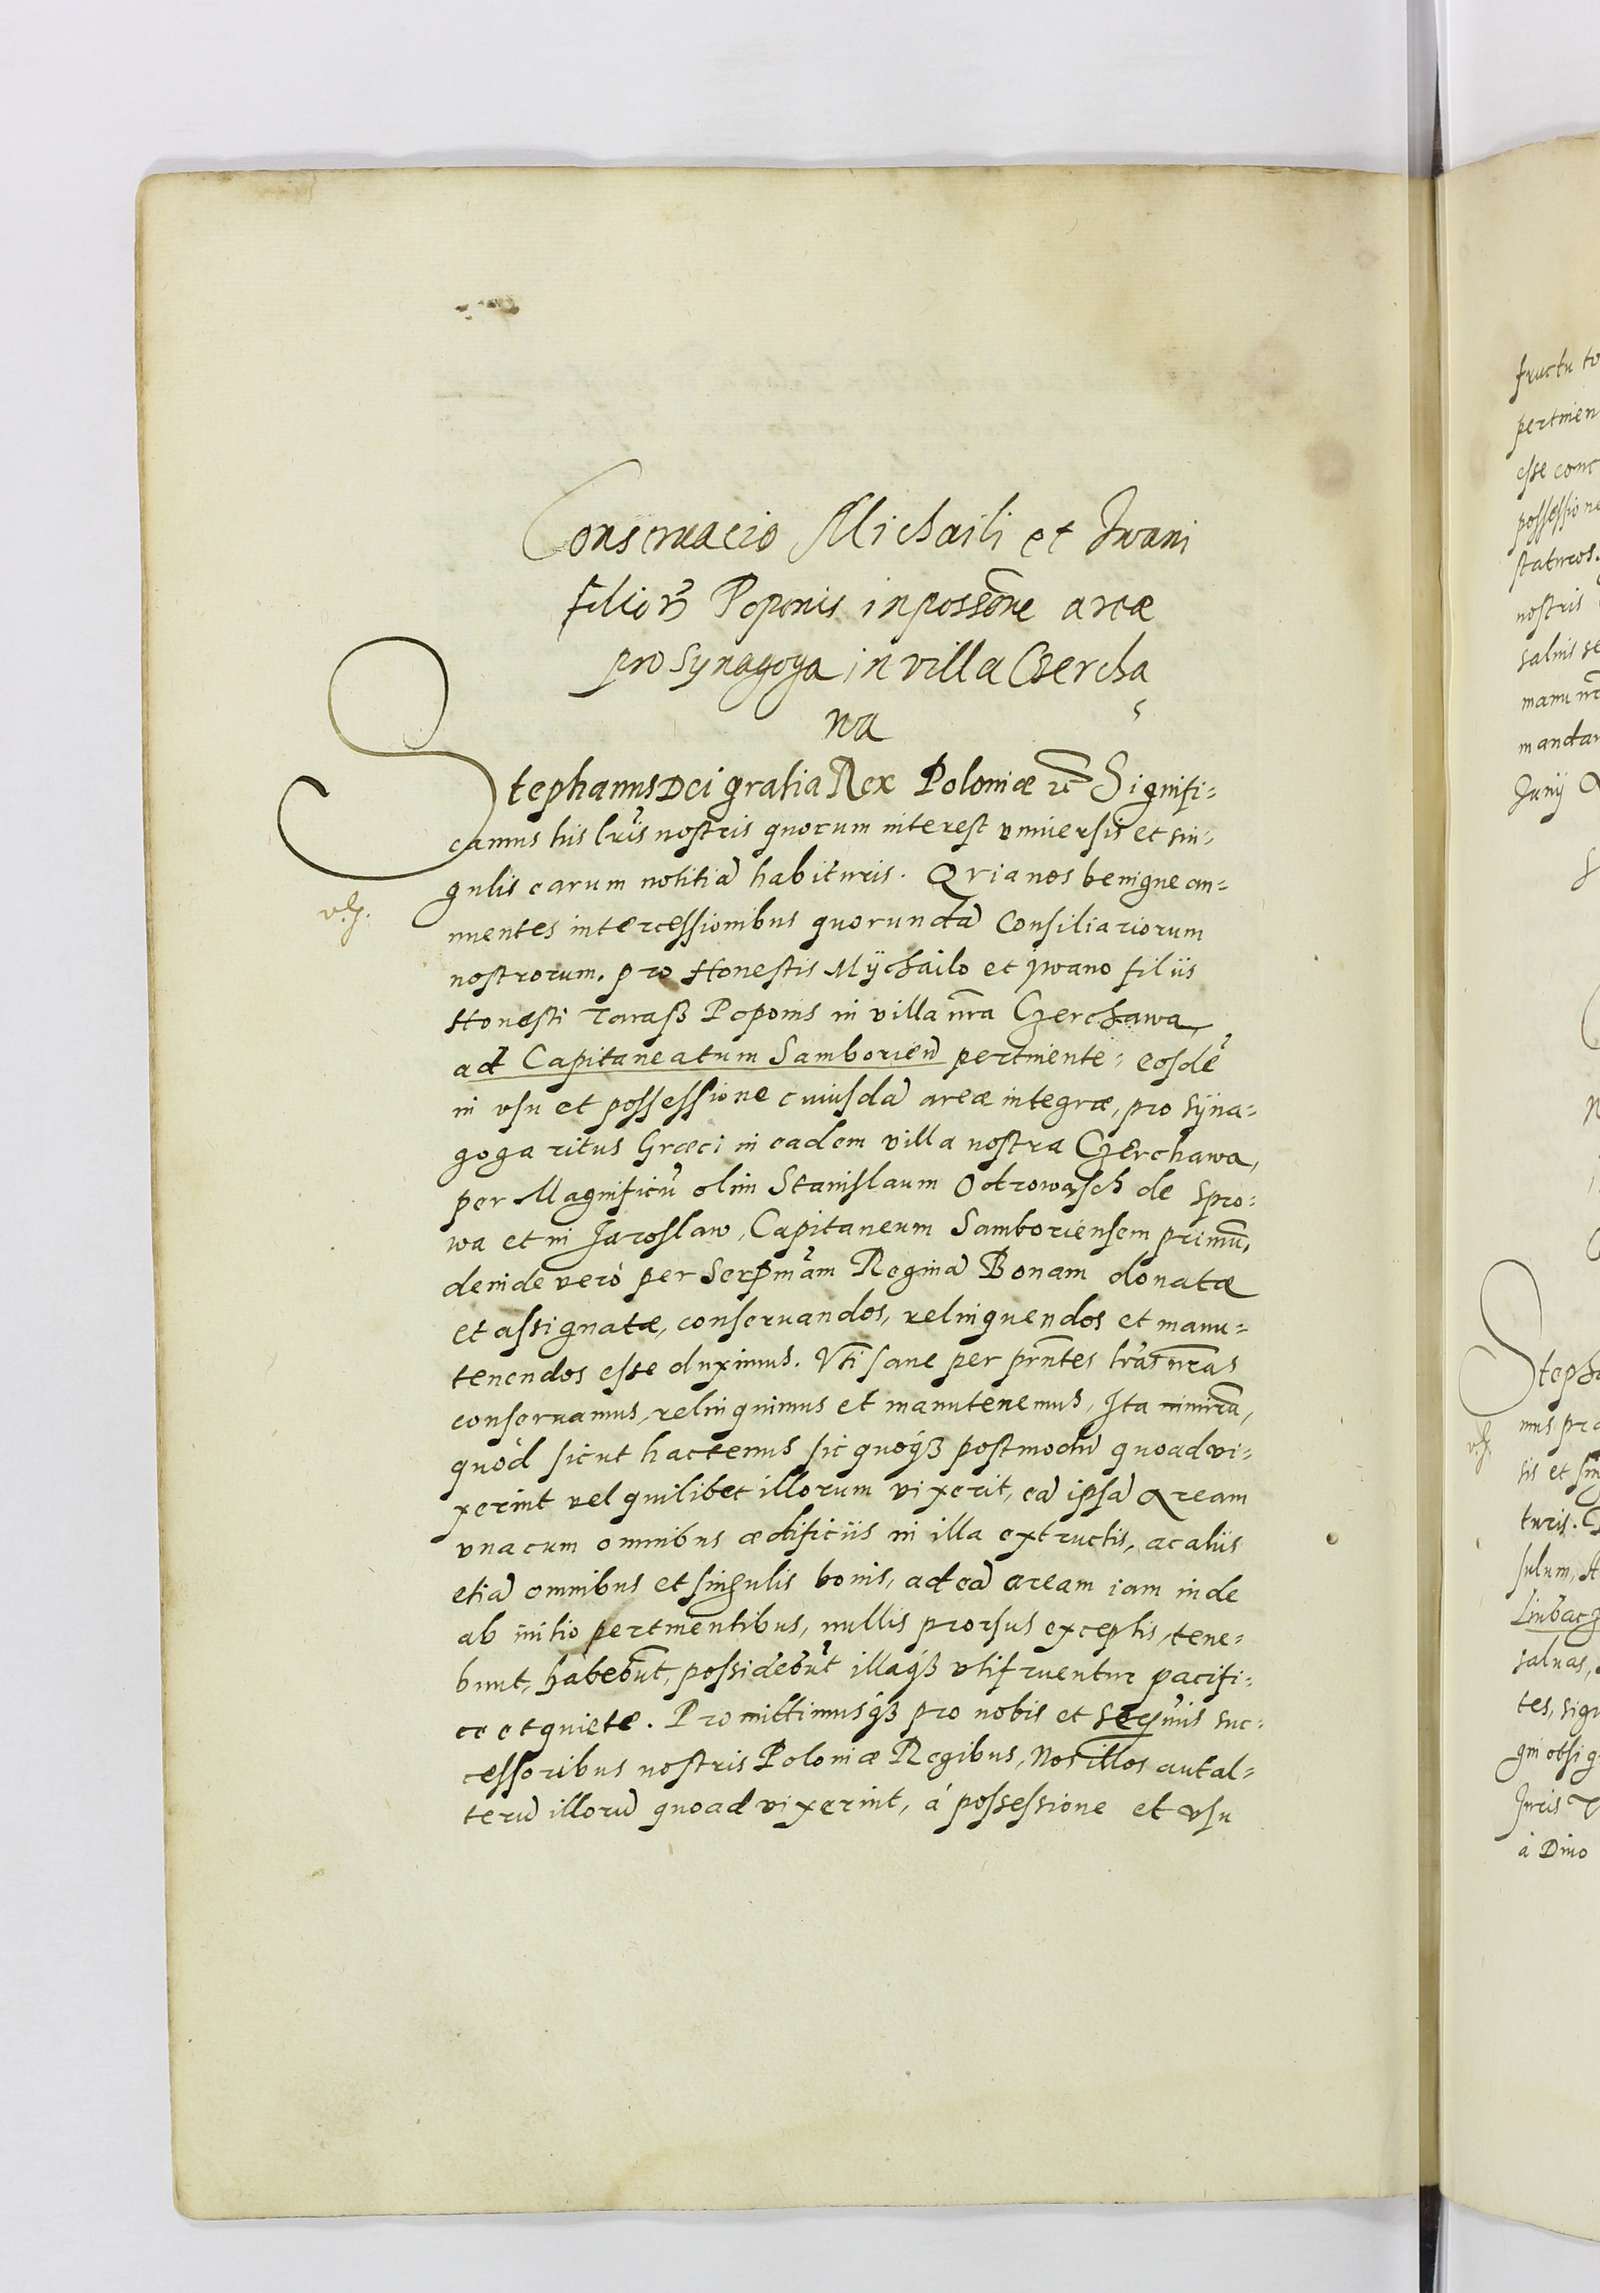 Conservacio Michaili et Iwani
filior̃ Poponis in possẽone areæ
pro Synagoga in villa Czercha
wa
Stephanus Dei gratia Rex Poloniæ Signifi-
camus his lr̃is nostris quorum interest vniuersis et sin-
gulis earum notitiã habituris. Quia nos benigne an-
nuentes intercessionibus quorundã Consiliariorum
nostrorum, pro Honestis Mÿchailo et Jwano filiis
Honesti Tarasß Poponis in villa nr̃a Czerchawa,
ad Capitaneatum Samborieñ pertinente: eosdẽ
in vsu et possessione cuiusdã areæ integræ, pro sÿna-
goga ritus Græci in eadem villa nostra Czerchawa,
per Magnificũ olim Stanislaum Odrowasch de Spro-
wa et in Jaroslaw, Capitaneum Samboriensem primũ,
deinde verò per Serp̃mam Reginã Bonam donatæ
et assignatæ, conseruandos, relinquendos et manu-
tenendos esse duximus. Vti sane per pr̃ntes lr̃as nr̃as
conseruamus, relinquimus et manutenemus, Ita
quòd sicut hactenus sic quoqȝ postmodũ quoad vi-
xerint vel quilibet illorum vixerit, eã ipsã Aream
vnacum omnibus ædificiis in illa extructis, ac aliis
etiã omnibus et singulis bonis, ad eã aream iam inde
ab initio pertinentibus, nullis prorsus exceptis, tene-
bunt, habebũt, possidebũt illaqȝ vtifruentur pacifi-
ce et quiete. Promittimusqȝ pro nobis et Ser̃mis suc-
cessoribus nostris Poloniæ Regibus, Nos illos aut al-
terũ illorũ quoad vixerint, à possessione et vsu
fructu
pertinen
esse conc
possessione
staturos.
nostris
saluis
manu nr̃
mandau
Junij
Steph
mus pr
sis et sin
turis.
sulum,
saluas,
tes, sig
Juris
à Diuo